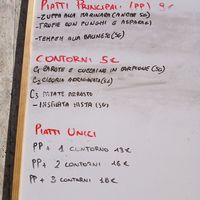 PIATTI PRINCIPALI (PP) 9€
- ZUPPA ALLA MARINARA (ANCHE SG)
- TROFIE CON FUNGHI E ASPARAGI
- TEMPEH ALLA BOLOGNESE (SG)
CONTORNI 5€
C1 CAROTE E ZUCCHINE IN (SG)
C2 CICORIA (SG)
C3 PATATE ARROSTO
- INSALATA MISTA (SG)
PIATTI UNICI
PP + 1 CONTORNO 13€
PP + 2 CONTORNI 16€
PP + 3 CONTORNI 18€